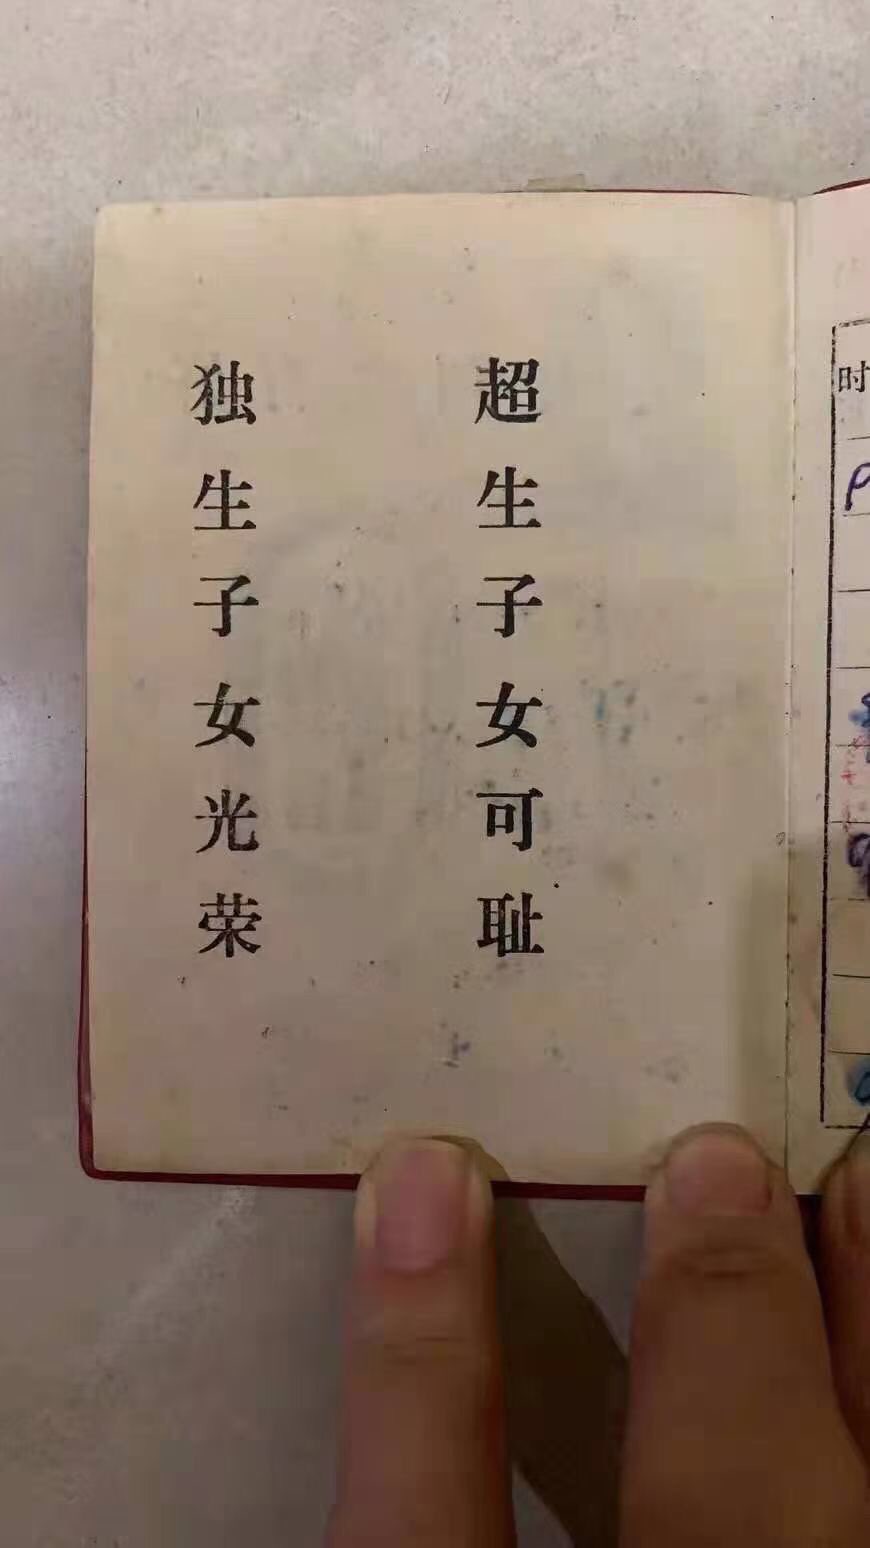 超生子女可耻
独生子女光荣
时